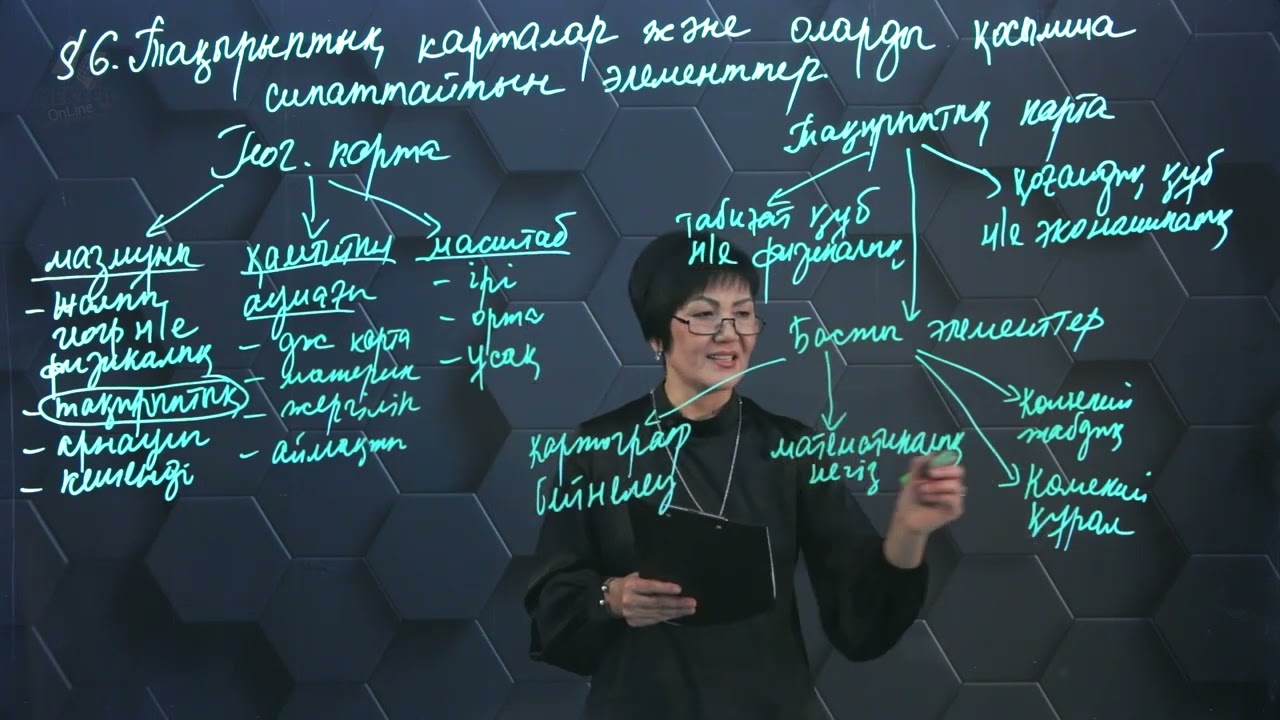 §6. Тақырыптық карталар және оларды қосымша
сипаттайтын элементтер.
Геог. карта
мазмұны
- жалпы
геогр н/е
физикалық
- тақырыптық
- арнаулы
- кешенді
қамтитын
аумағы
- дж карта
- материк
- жергілік
- аймақты
масштаб
- ірі
- орта
- ұсақ
Тақырыптық карта
табиғат құб
н/е физикалық
қоғамдық құб
н/е экономикалық
Басты элементтер
картограф
бейнелеу
математикалық
негіз
Көмекші
жабдық
Көмекші
құрал
OnLine